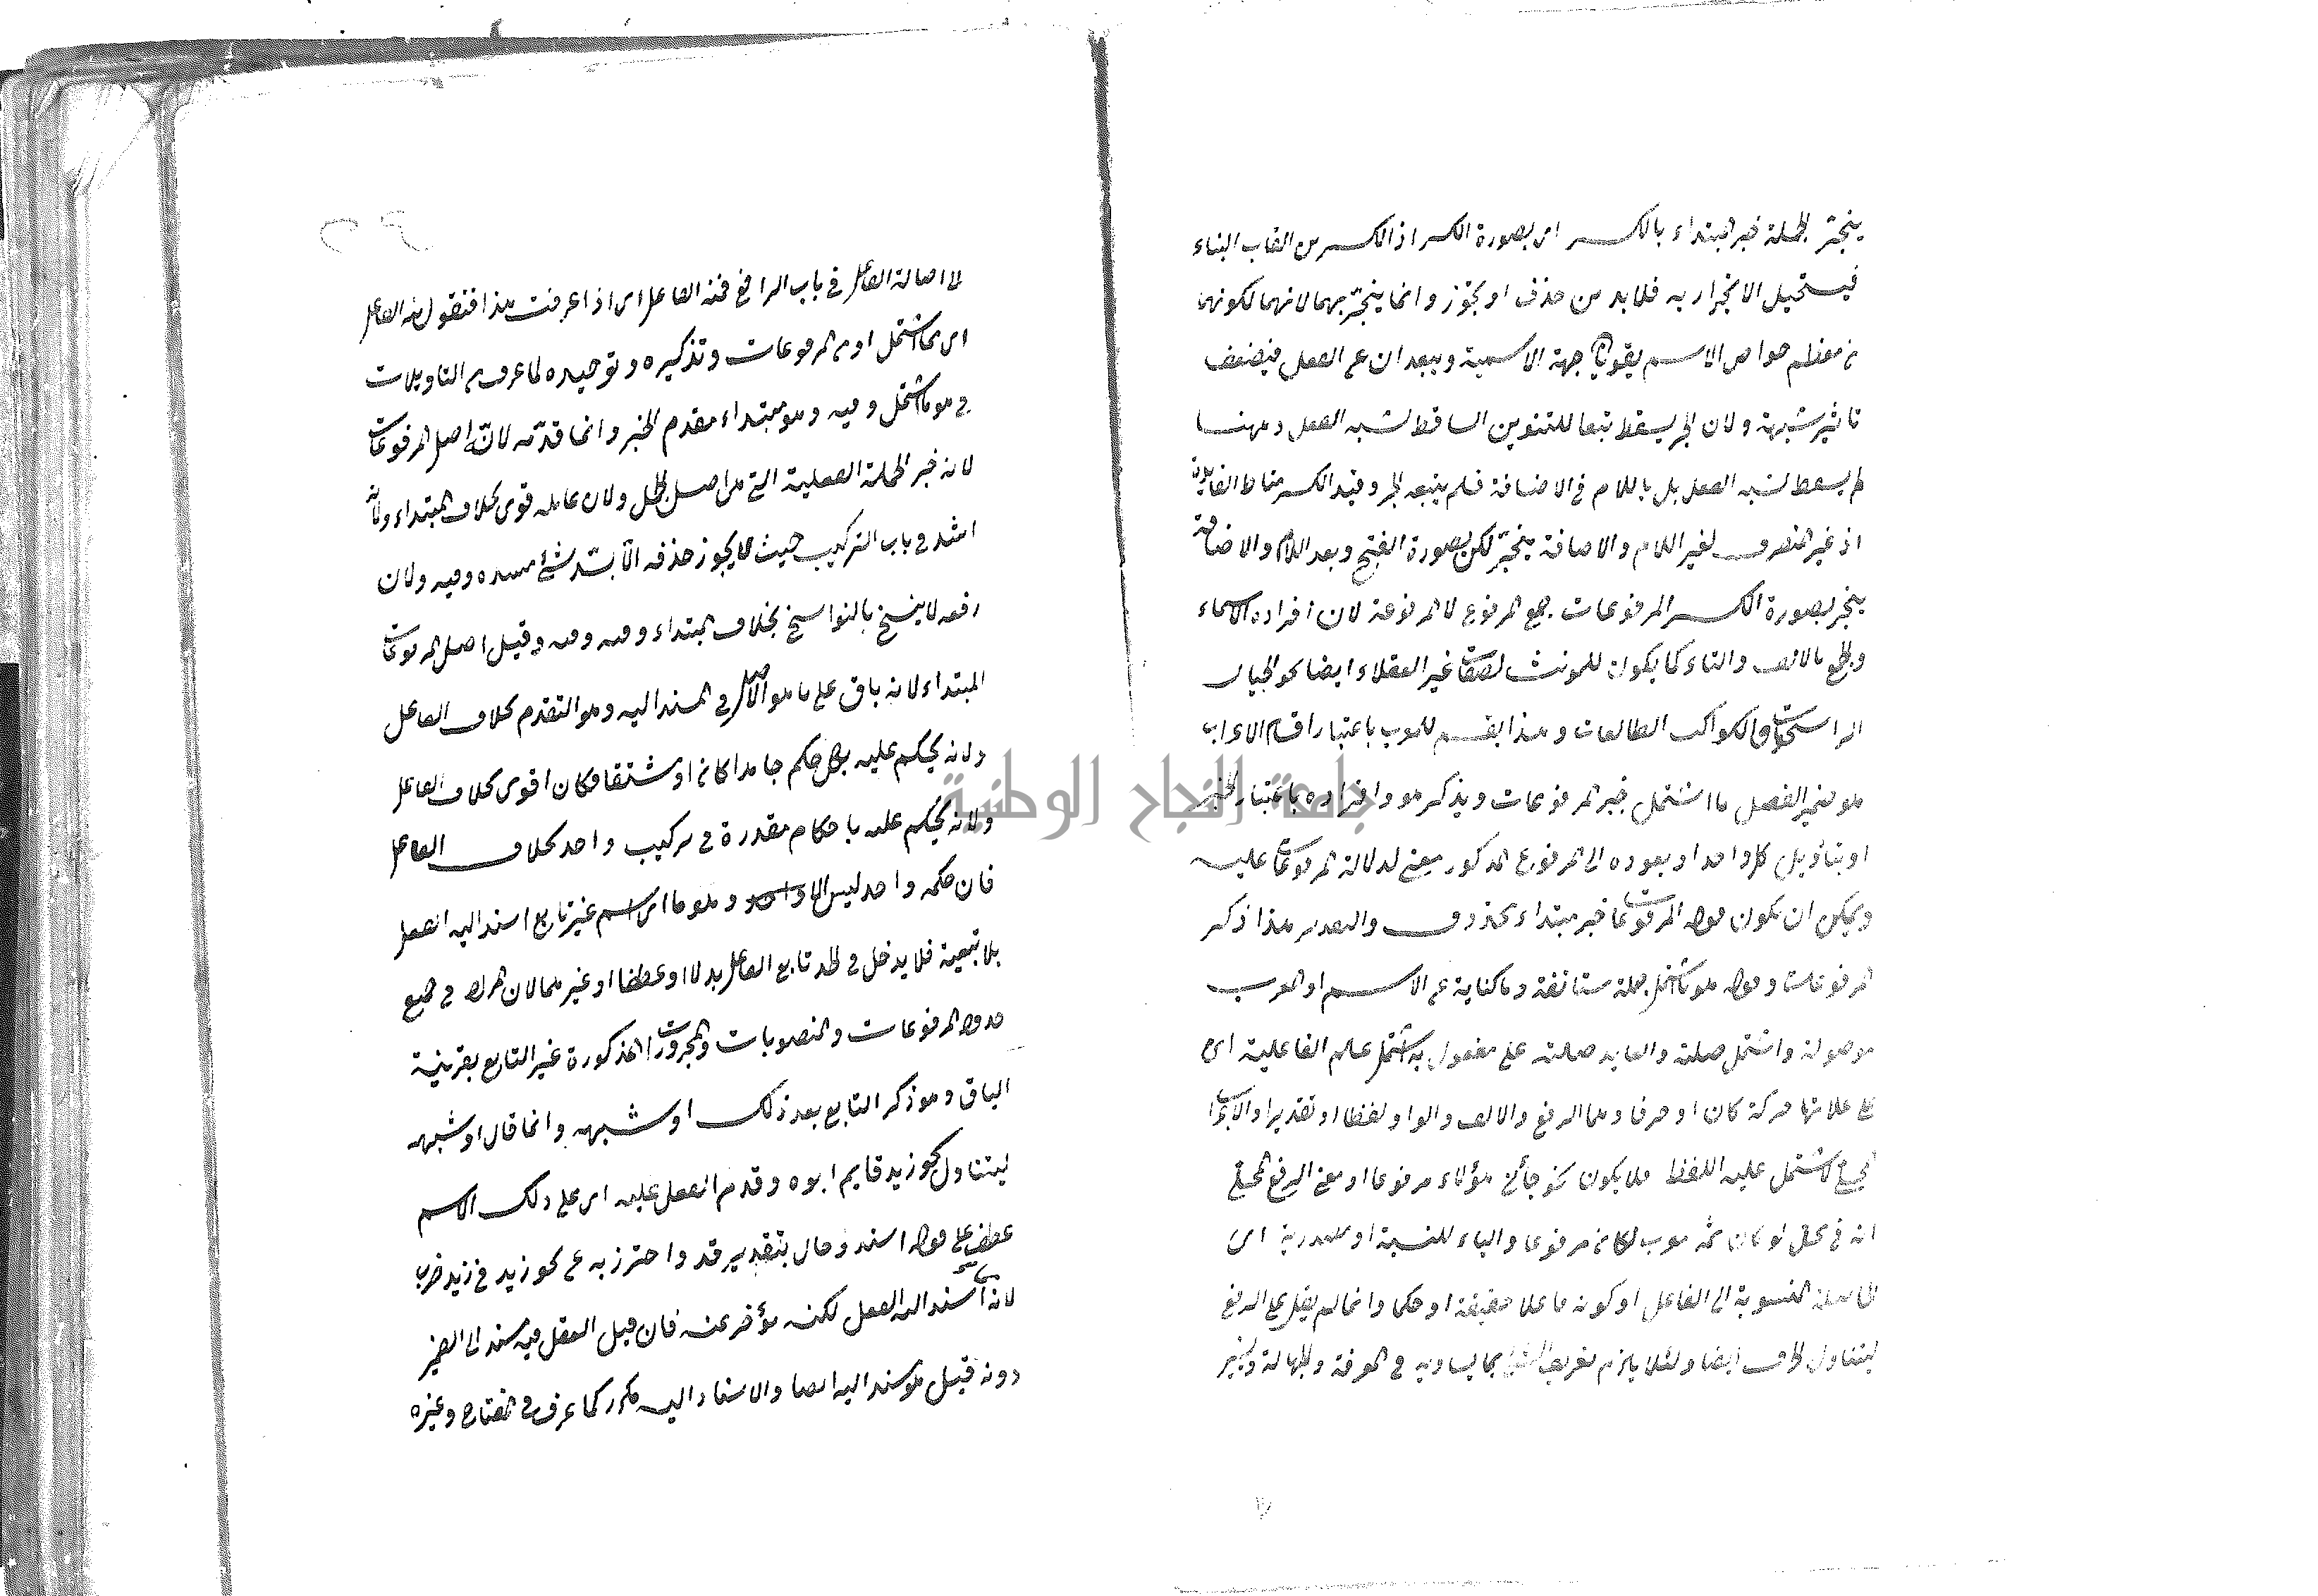 ينجر الجملة خبر المبتداء بالكسر اى بصورة الكسر اذ الكسر من القاب البناء
فيستحيل الانجرار به فلا بد من حذف او تجوز وانما ينجر بهما لانهما لكونهما
من معظم خواص الاسم يقويان جهة الاسمية ويبعدان عن الفعل فيضعف
تاثير شبهة ولان الجر يسقط تبعا للتنوين الساقط لشبه الفعل وههنا
لم يسقط لشبه الفعل بل باللام فى الاضافة فلم يتبعه الجر وقيد الكسر مناط الفايدة
اذ غير المنصرف لغير اللام والاضافة ينجر لكن بصورة الفتح وبعد اللام والاضافة
ينجر بصورة الكسر المرفوعات جمع المرفوع لا المرفوعة لان افراده الاسماء
والجمع بالالف والتاء كما يكون للمونث لصفات غير العقلاء ايضا نحو الجبال
الراسخات والكواكب الطالعات وهذا تقسيم للمعرب باعتبار اقسام الاعراب
هو ضمير الفصل ما اشتمل خبر المرفوعات وتذكير هو وافراده باعتبار الخبر
او بتاويل كل واحد او بعوده الى المرفوع المذكور معنى لدلالة المرفوعات عليه
ويمكن ان يكون قوله المرفوعات خبر مبتداء محذوف والتقدير هذا ذكر
المرفوعات وقوله هو ما اشتمل جملة مستانفة وما كناية عن الاسم او المعرب
موصولة واشتمل صلته والعايد صلته على مفعول به اشتمل علم الفاعلية اى
على علامتها حركة كان او حرفا وهما الرفع والالف والواو لفظا او تقديرا والاعراب
المحلى لا يشتمل عليه اللفظ فلا يكون نحو جائنى هؤلاء مرفوعا او معنى الرفع المحلى
انه فى محل لو كان ثمه معرب لكان مرفوعا والياء للنسبة او مصدرية اى
المنسوبة الى الفاعل او كونه فاعلا حقيقة او حكما وانما لم يقل على الرفع
ليتناول الحرف ايضا ولئلا يلزم تعريف الشئ بما يساويه فى المعرفة والجهالة
لى اصالة الفاعل فى باب الرافع فمنه الفاعل اى اذا عرفت هذا فتقول منه الفاعل
اى مما اشتمل او من المرفوعات وتذكيره وتوحيده لما عرف من التاويلات
فى هو ما اشتمل وفيه وهو مبتداء مقدم الخبر وانما قدمه لانه اصل المرفوعات
لانه خبر الجملة الفعلية التى هى اصل الجمل ولان عامله قوى بخلاف المبتداء ولانه
اشد فى باب التركيب حيث لا يجوز حذفه الا بسد شئ مسده وفيه ولان
رفعه لا ينسخ بالنواسخ بخلاف المبتداء وفيه وفيه وقيل اصل المرفوعات
المبتداء لانه باق على ما هو الاصل فى المسند اليه وهو التقدم بخلاف الفاعل
ولانه يحكم عليه بكل حكم جامدا كان او مشتقا فكان اقوى بخلاف الفاعل
ولانه يحكم عليه باحكام مقدرة فى تركيب واحد بخلاف الفاعل
فان حكمه واحد ليس الا وهو ما اى اسم غير تابع اسند اليه الفعل
بلا تبعية فلا يدخل فى الحد تابع الفاعل بدلا او عطفا او غيرهما لان المراد فى جميع
حدود المرفوعات والمنصوبات والمجرورات المذكورة غير التابع بقرينة
الباقى وهو ذكر التابع بعد ذلك او شبهه وانما قال او شبهه
ليتناول نحو زيد قايم ابوه وقدم الفعل عليه اى على ذلك الاسم
عطف على قوله اسند وحال بتقدير قد واحترز به عن نحو زيد فى زيد ضرب
لانه اسند اليه الفعل لكنه مؤخر عنه فان قيل الفعل فيه مسند الى الضمير
دونه قيل هو مسند اليه ايضا والاسناد اليه مكرر كما عرف فى المفتاح وغيره
جامعة النجاح الوطنية